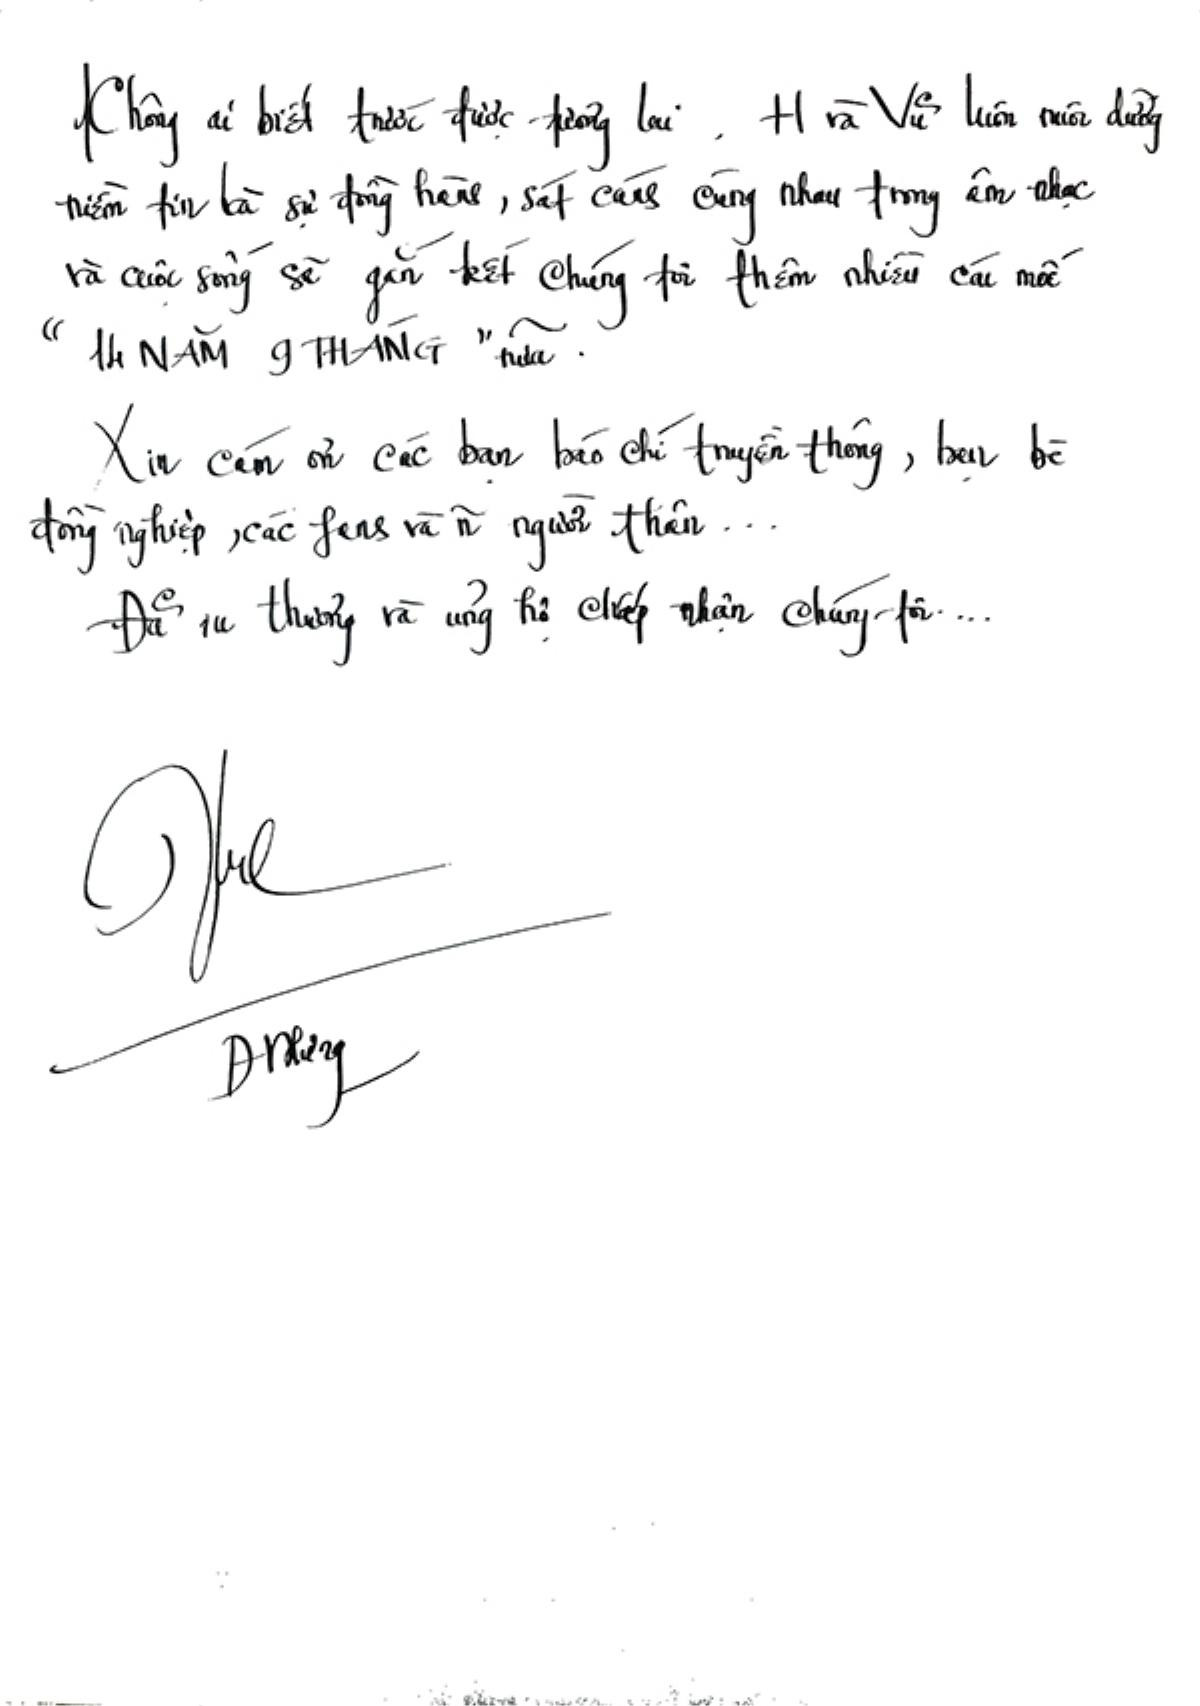 Không ai biết trước được tương lai. H và Vũ luôn nuôi dưỡng
niềm tin là sự đồng hành, sát cánh cùng nhau trong âm nhạc
và cuộc sống sẽ gắn kết chúng tôi thêm nhiều cái mốc
"14 NĂM 9 THÁNG" nữa.
Xin cám ơn các bạn báo chí truyền thông, bạn bè
đồng nghiệp, các fans và n~ người thân...
Đã iu thương và ủng hộ chấp nhận chúng tôi...